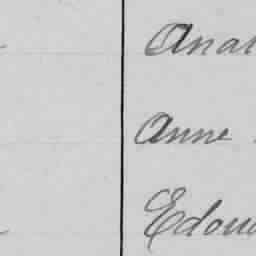 Anat
Anne
Edou